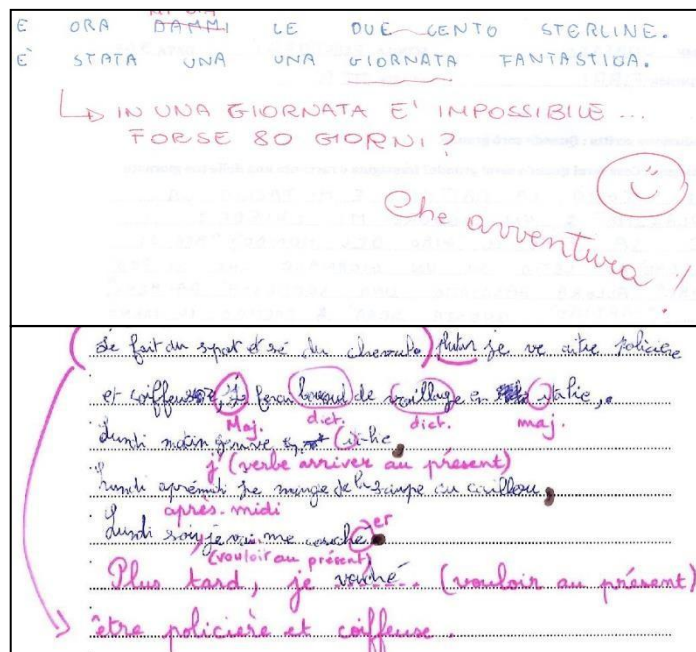 MI DIA
E ORA DAMMI LE DUE CENTO STERLINE.
E' STATA UNA UNA GIORNATA FANTASTICA.
IN UNA GIORNATA E' IMPOSSIBILE ...
FORSE 80 GIORNI?
Che avventura!
fait du sport et du plutar je ve aitre policière
et coiffeuse, je ferau de en italie,
Maj. dict. dict. maj.
Lundi matin italie
j' (verbe arriver au présent)
Lundi je mange de la soupe au
après-midi
er
Lundi soir je vai me couché
(vouloir au présent)
Plus tard, je (vouloir au présent)
être policière et coiffeuse.